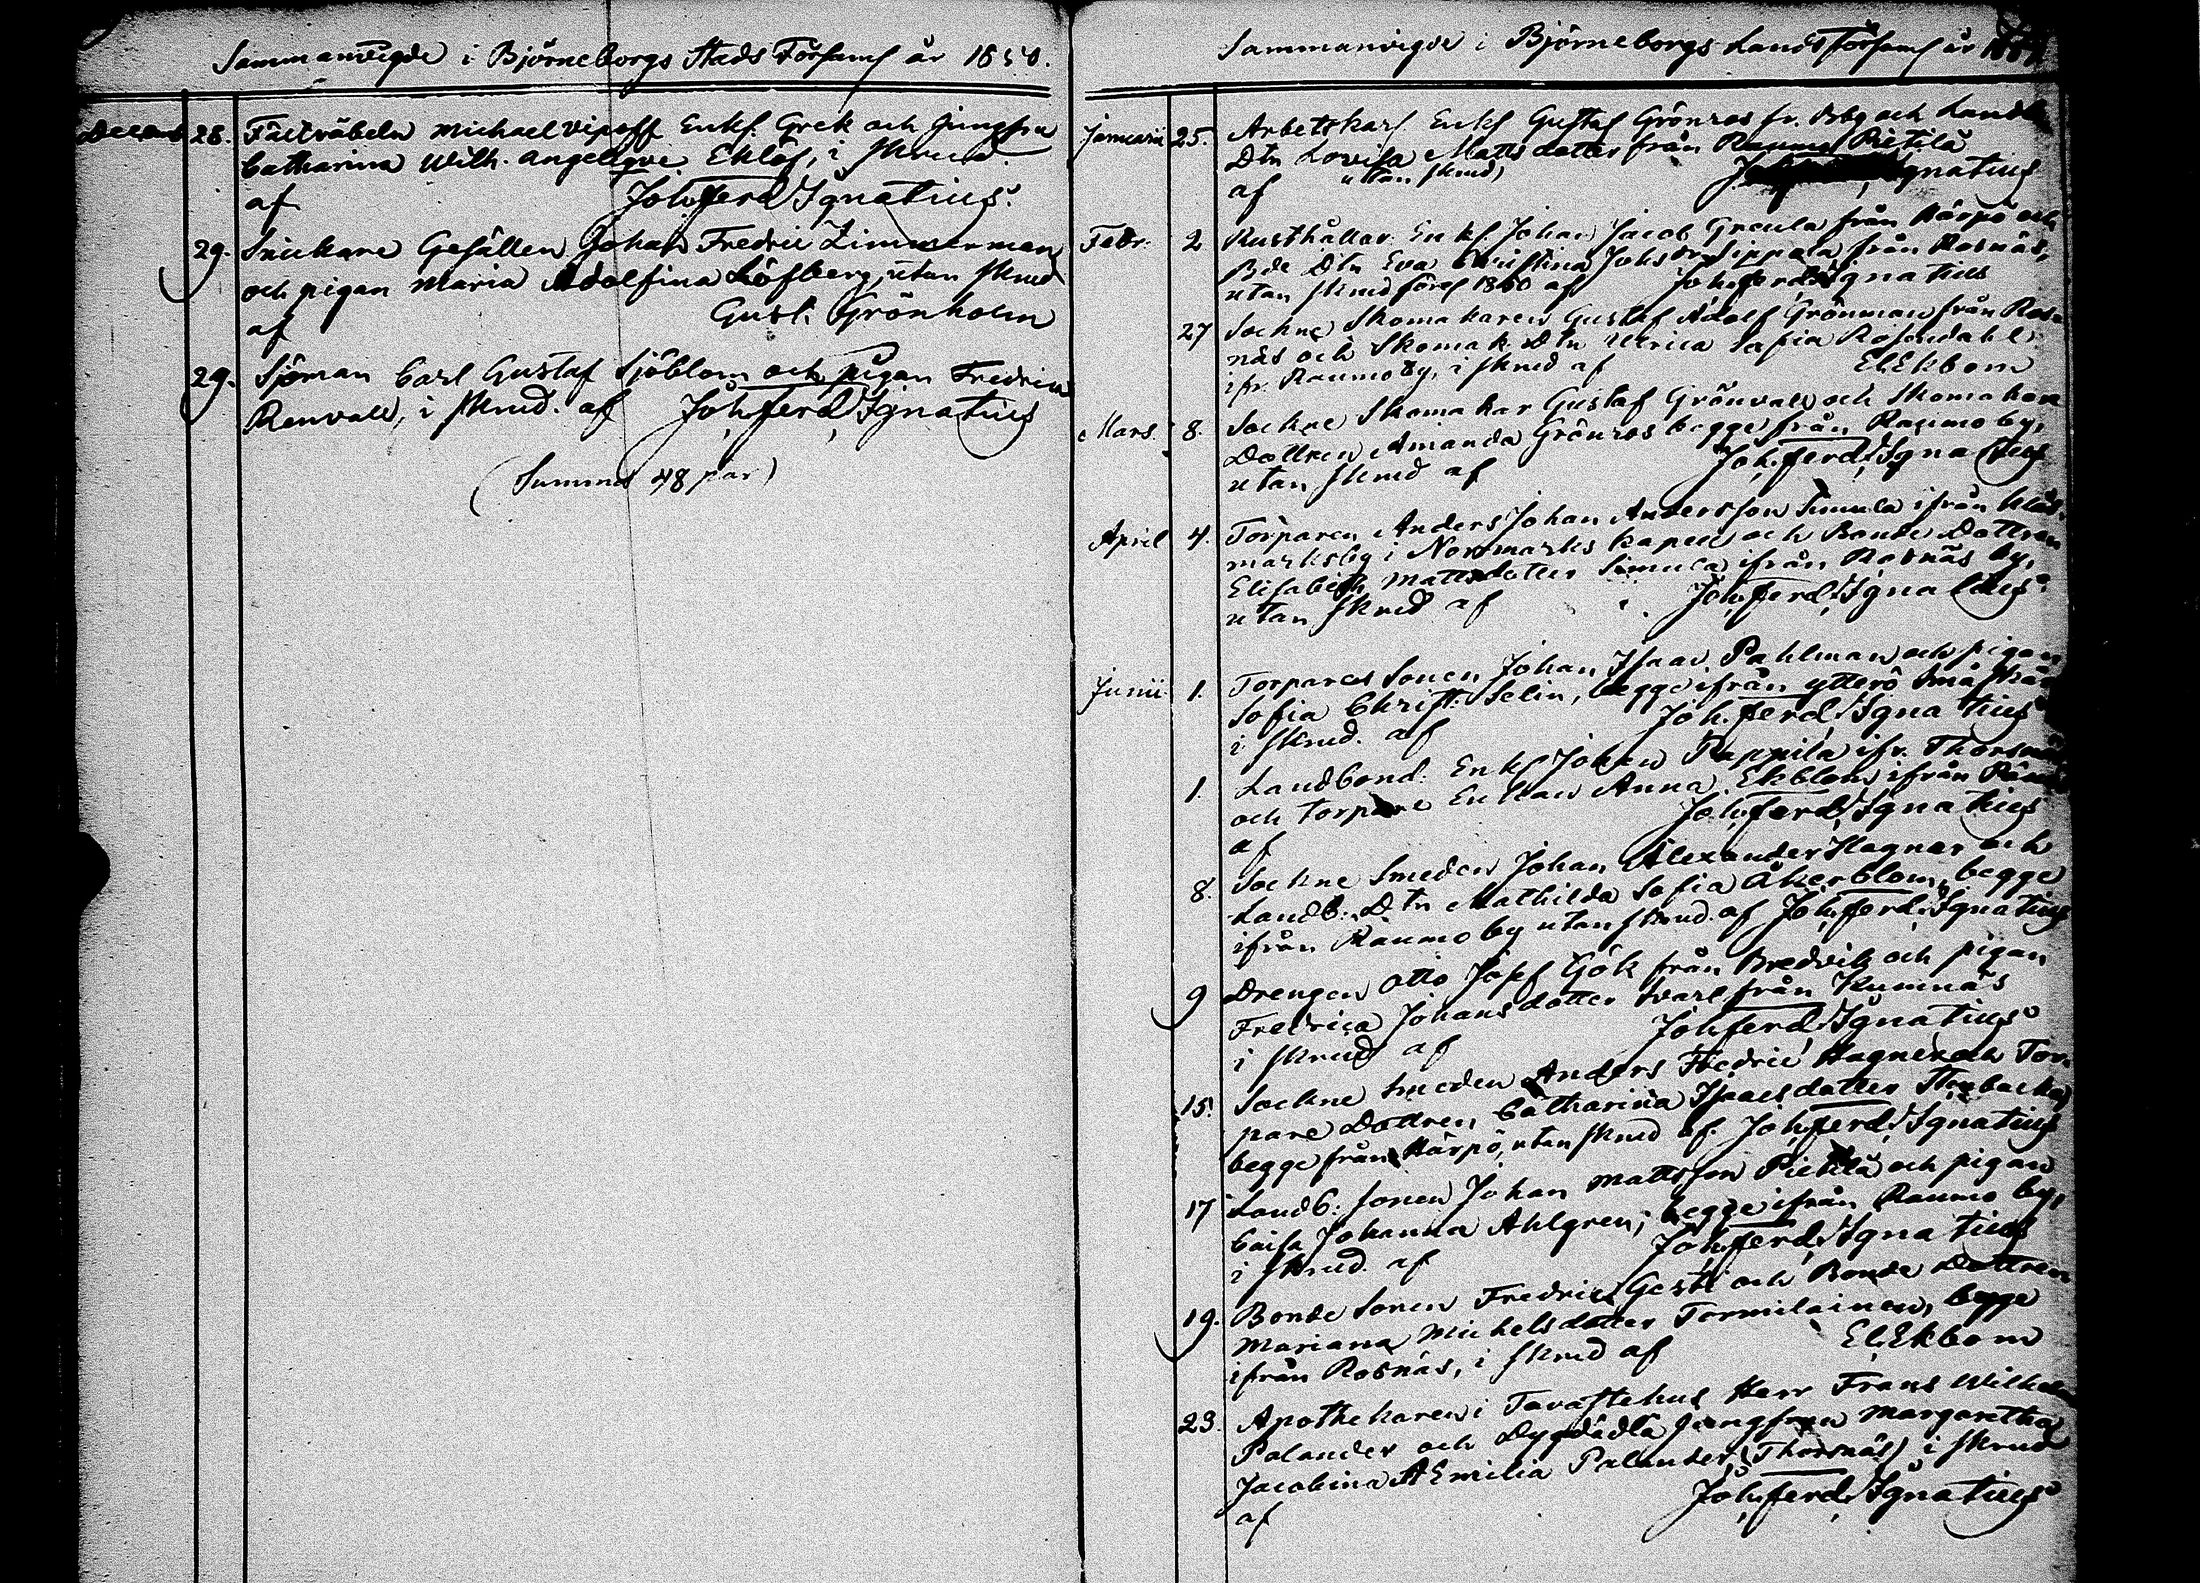 Sammanvigde i Björneborgs Stads Församl år 1850.
Decemb 28. Fältväbeln Michael Vipoff Enkl. Grek och Jungfru
Catharina Wilh. Angelique Eklöf, i skrud.
af Joh. Ferd. Ignatius.
29. Snickare Gesällen Johan Fredric Zimmerman
och pigan Maria Adolfina Löfberg, utan skrud
af Gust. Grönholm
29. Sjöman Carl Gustaf Sjöblom och pigan Fredrica
Renvall, i skrud. af Joh. Ferd. Ignatius
(Summa 48 par)
Sammanvigde i Björneborgs Lands Församl år
Januarii 25. Arbetskarl Enkl Gustaf Grönros fr. Bbg och Landb
Dtn Lovisa Matts dotter från Raumo Pietilä
utan skrud,
af Ignatius
Febr. 2 Rusthållar Enkl. Johan Jacob Grecula från Härpö och
Bde Dtn Eva Christina Johsdr Sippola från Rosnäs,
utan skrud förel 1860 af Joh. Ferd. Ignatius
27 Sockne Skomakaren Gustaf Adolf Grönman från Ros-
näs och Skomak Dtn Ulrica Sofia Rosendahl
ifr. Raumo by, i skrud af El. Ekbom
Mars. 8. Sockne Skomakar Gustaf Grönvall och Skomakar
Dottren Amanda Grönros begge från Raumo by,
utan skrud af Joh. Ferd. Ignatius
April 4. Torparen Anders Johan Andersson Simula ifrån
marksby i Norrmarks kapell och Bonde Dottren
Elisabeth Mattsdotter Simula ifrån Rosnäs by,
utan skrud af Joh. Ferd. Ignatius.
Junii 1. Torpares Sonen Johan Isaac Pahlman och pigan
Sofia Christ: Selin, begge ifrån ytterö Små
i skrud. af Joh. Ferd. Ignatius
1. Landbond. Enkl Johan Pappila ifr. Thorsnäs
och torpare Enkan Anna Ekblom ifrån
af Joh. Ferd. Ignatius
8. Sockne Smeden Johan Alexander Hagner och
Landb. Dtn Mathilda Sofia Åkerblom, begge
ifrån Raumo by utan skrud. af Joh. Ferd. Ignatius
9 Drengen Otto Josef Gök från Bredvik och pigan
Fredrica Johansdotter Svarl från Kumnäs
i skrud af Joh. Ferd. Ignatius
15. Sockne Smeden Anders Fredric Hagner och Tor-
pare Dottren Catharina Isaacsdotter Stenbacka
begge från Härpö, utan skrud af. Joh. Ferd. Ignatius
17 Landb: sonen Johan Mattsson Pietilä och pigan
Caisa Johanna Ahlgren, begge ifrån Raumo by,
i skrud. af Joh. Ferd. Ignatius
19. Bonde Sonen Fredric Gesti och Bonde Dottren
Mariana Michelsdotter Tormilainen, begge
ifrån Rosnäs, i skrud af El. Ekbom
23. Apothekaren i Tavastehus Herr Frans Wilhelm
Palander och Dygdädla Jungfrun Margaretha
Jacobina AEmilia Palander, (Thorsnäs) i skrud
af Joh. Ferd. Ignatius